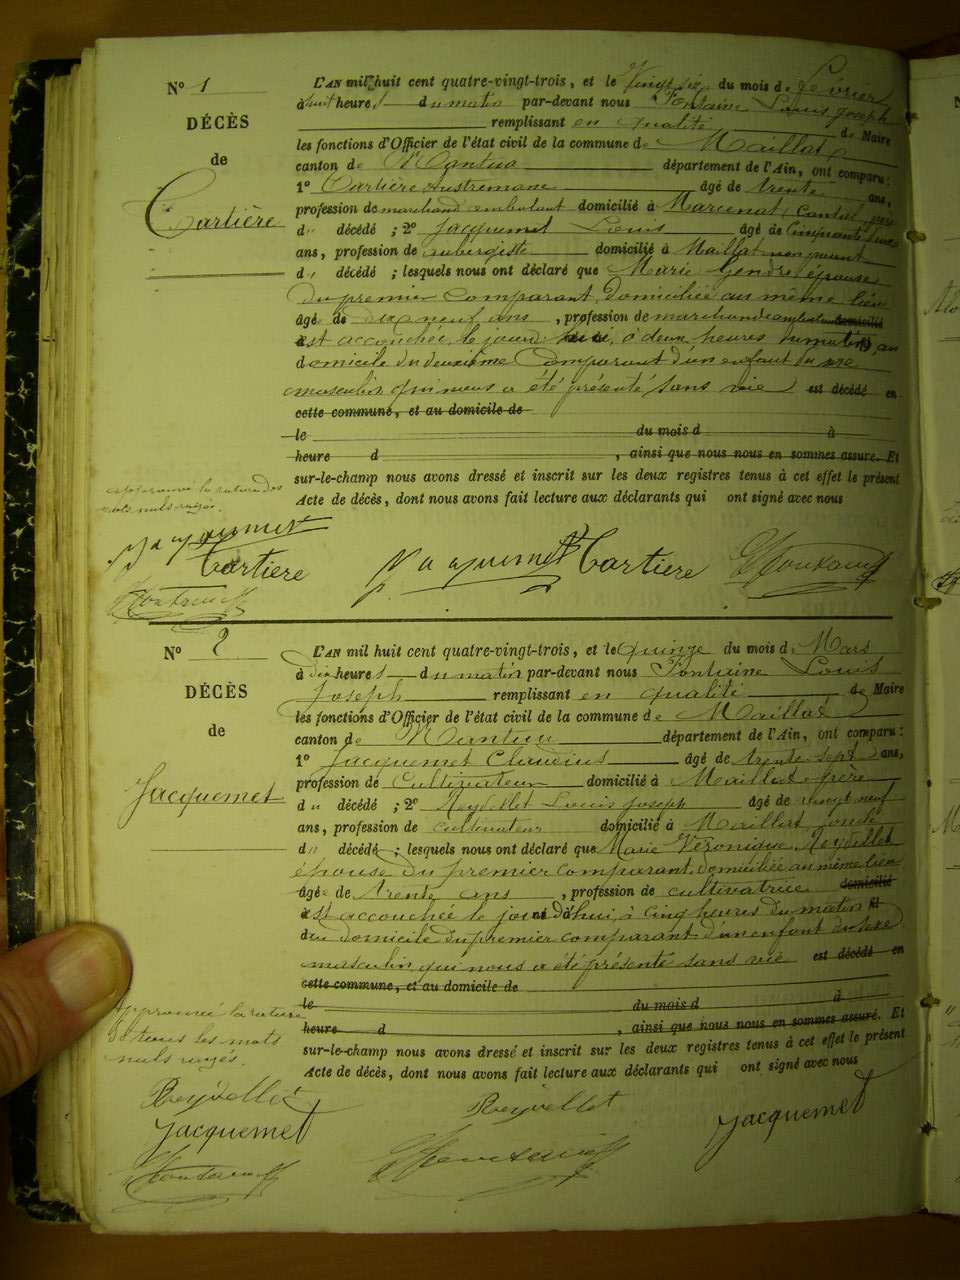 N° 1
DÉCÈS
de
Cartière
L'AN mil huit cent quatre-vingt-trois, et le Vingt six du mois de Février
à huit heures du matin par-devant nous Fontaine Louis Joseph
remplissant en qualité de Maire
les fonctions d'Officier de l'état civil de la commune de Maillat
canton de Nantua département de l'Ain, ont comparu :
1° Cartière Austremoine âgé de trente ans,
profession de marchand ambulant domicilié à Marcenat, Cantal, père
du décédé ; 2° Jacquemet Louis âgé de Cinquante deux
ans, profession de aubergiste domicilié à Maillat non parent
du décédé ; lesquels nous ont déclaré que Marie Gendre épouse
du premier Comparant, domiciliée au même lieu
âgé de dix neuf ans, profession de marchande ambulante domicilié
est accouchée le jour à deux heures du matin, au
domicile du deuxième Comparant d'un enfant du sexe
masculin qui nous a été présenté sans vie est décédé en
cette commune, et au domicile de
le du mois d à
heure d , ainsi que nous nous en sommes assuré. Et
sur-le-champ nous avons dressé et inscrit sur les deux registres tenus à cet effet le présent
Acte de décès, dont nous avons fait lecture aux déclarants qui ont signé avec nous
approuvé la rature des
mots nuls rayés.
Jacquemet
Cartiere
Fontaine
Jacquemet Cartiere Fontaine
N° 2
DÉCÈS
de
Jacquemet
L'AN mil huit cent quatre-vingt-trois, et le quinze du mois de Mars
à dix heures du matin par-devant nous Fontaine Louis
Joseph remplissant en qualité de Maire
les fonctions d'Officier de l'état civil de la commune de Maillat
canton de Nantua département de l'Ain, ont comparu :
1° Jacquemet Claudius âgé de trente sept ans,
profession de Cultivateur domicilié à Maillat père
du décédé ; 2° Reydellet Louis Joseph âgé de vingt neuf
ans, profession de cultivateur domicilié à Maillat
du décédé ; lesquels nous ont déclaré que Marie Véronique Reydellet
épouse du premier comparant, domiciliée au même lieu
âgé de trente ans, profession de cultivatrice domicilié
est accouchée le jour d'hui, à cinq heures du matin
au domicile du premier comparant d'un enfant du sexe
masculin qui nous a été présenté sans vie est décédé en
cette commune, et au domicile de
le du mois d à
heure d , ainsi que nous nous en sommes assuré. Et
sur-le-champ nous avons dressé et inscrit sur les deux registres tenus à cet effet le présent
Acte de décès, dont nous avons fait lecture aux déclarants qui ont signé avec nous
Approuvé la rature
de tous les mots
nuls rayés.
Reydellet
Jacquemet
Fontaine
Reydellet
Fontaine
Jacquemet